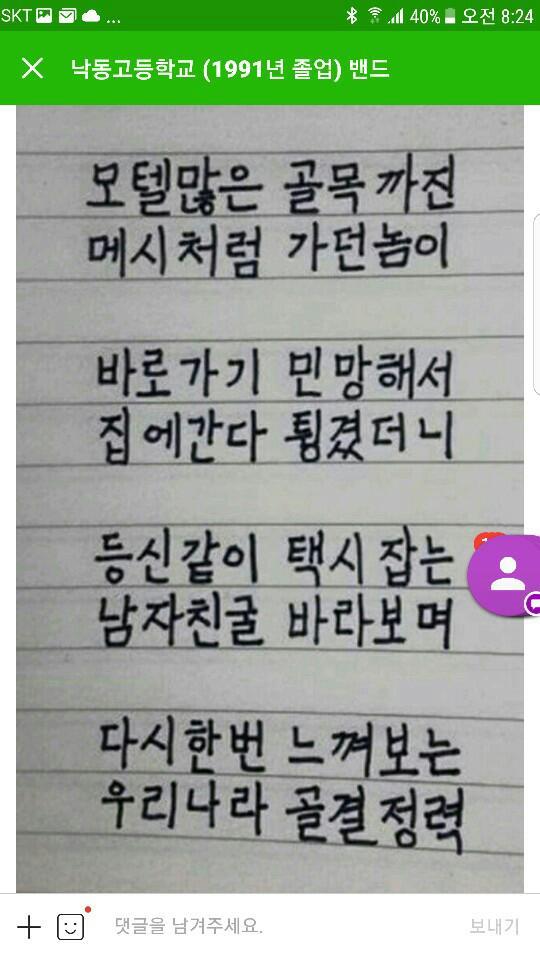 SKT ... 40% 오전 8:24
낙동고등학교 (1991년 졸업) 밴드
모텔많은 골목까진
메시처럼 가던놈이
바로가기 민망해서
집에간다 튕겼더니
등신같이 택시잡는
남자친굴 바라보며
다시한번 느껴보는
우리나라 골결정력
댓글을 남겨주세요.
보내기